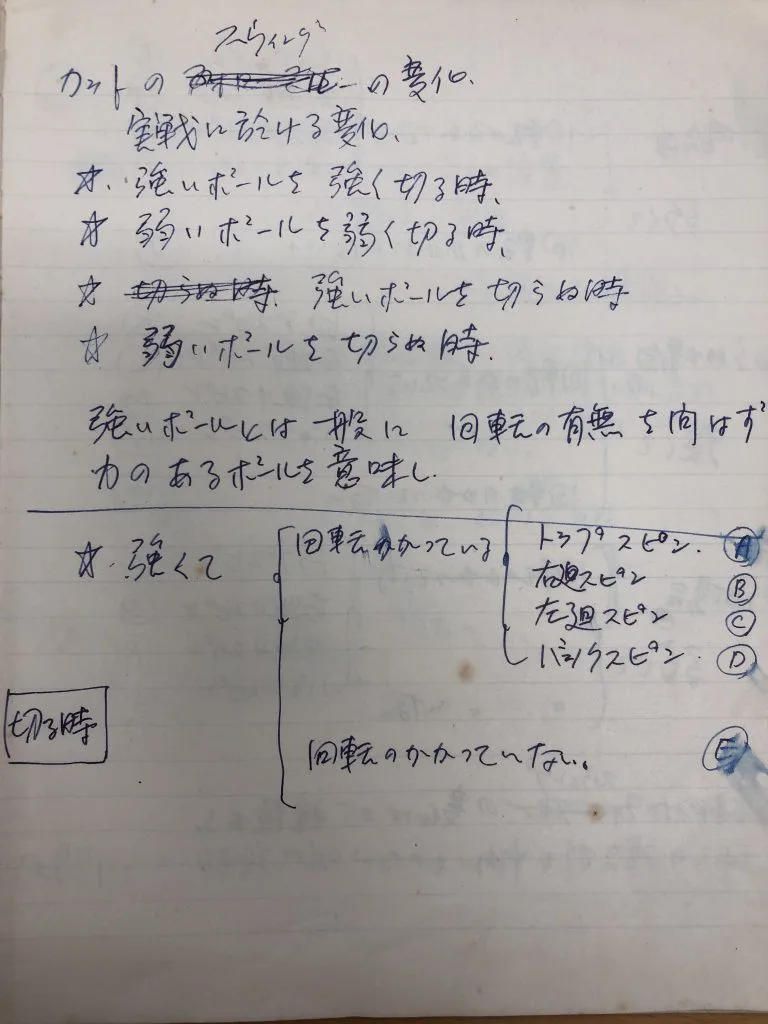 スウィング
カットの の変化、
実戦に於ける変化、
☆ 強いボールを 強く切る時、
☆ 弱いボールを弱く切る時、
☆ 切らぬ時、強いボールを切らぬ時
☆ 弱いボールを切らぬ時、
強いボールとは一般に 回転の有無を向はず
力のあるボールを意味し、
☆ 強くて
回転のかかっている
トップスピン、 Ⓐ
右廻スピン Ⓑ
左廻スピン Ⓒ
バックスピン、 Ⓓ
切る時
回転のかかっていない。 Ⓔ